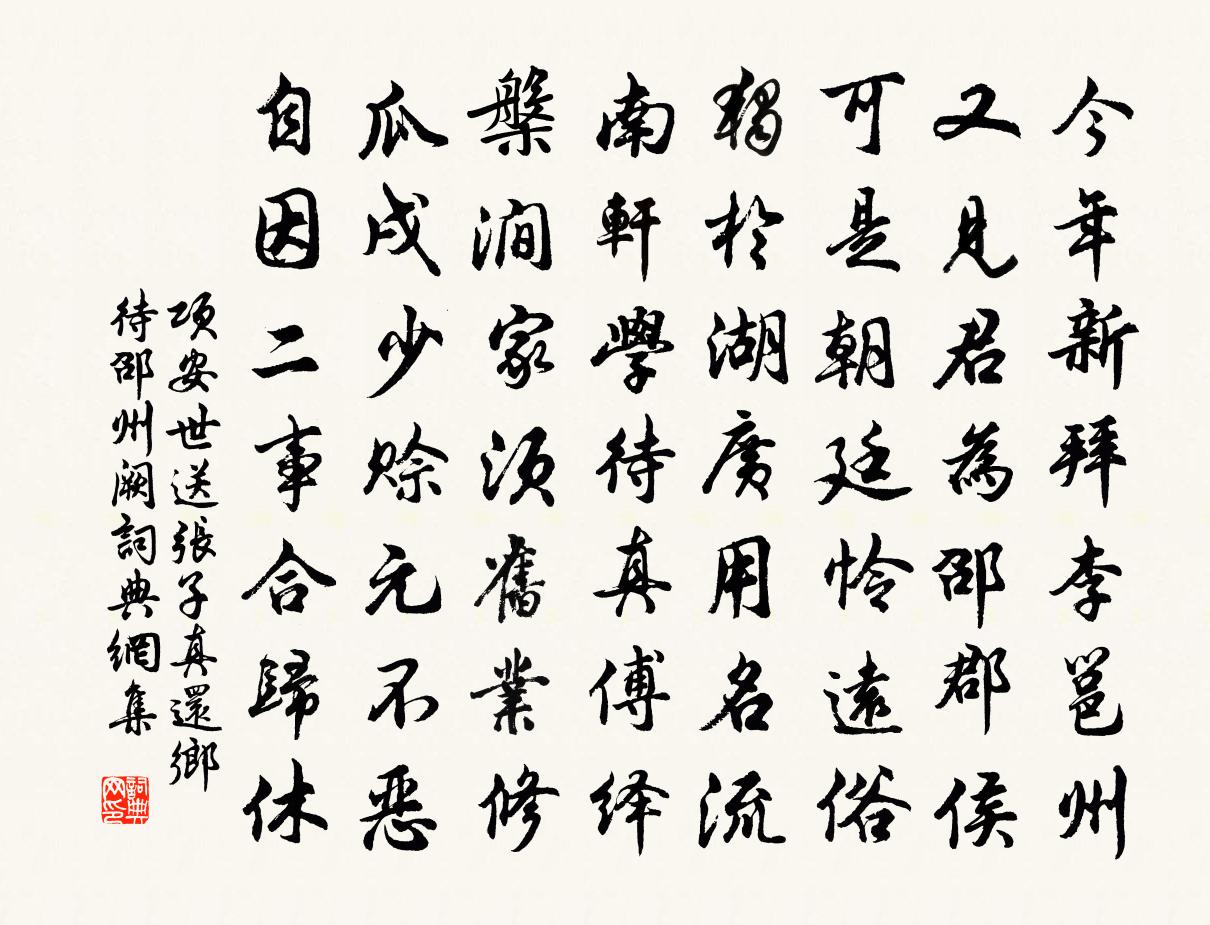 今年新拜李邕州
又見君為邵郡侯
可是朝廷憐遠俗
獨於湖廣用名流
南軒學待真傅绎
槃澗家須舊業修
瓜戍少賒元不惡
自因二事合歸休
項安世送張子真還鄉
待邵州阙詞典網集
詞典网印